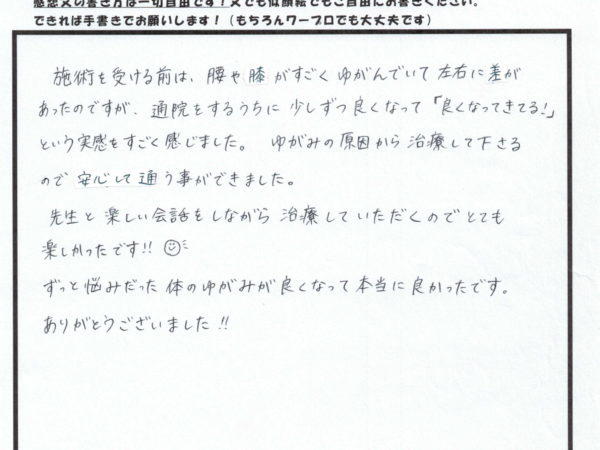 感想文の書き方は一切自由です！文でも似顔絵でもご自由にお書きください。
できれば手書きでお願いします！（もちろんワープロでも大丈夫です）
施術を受ける前は、腰や膝がすごくゆがんでいて左右に差が
あったのですが、通院をするうちに少しずつ良くなって「良くなってきてる!」
という実感をすごく感じました。 ゆがみの原因から治療して下さる
ので安心して通う事ができました。
先生と楽しい会話をしながら治療していただくのでとても
楽しかったです!!
ずっと悩みだった体のゆがみが良くなって本当に良かったです。
ありがとうございました!!